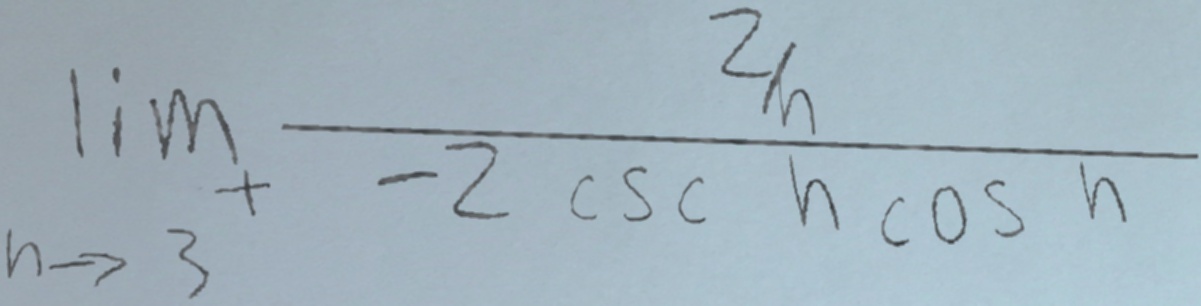 lim_{h→3^+} \frac{2/h}{-2 csc h cos h}